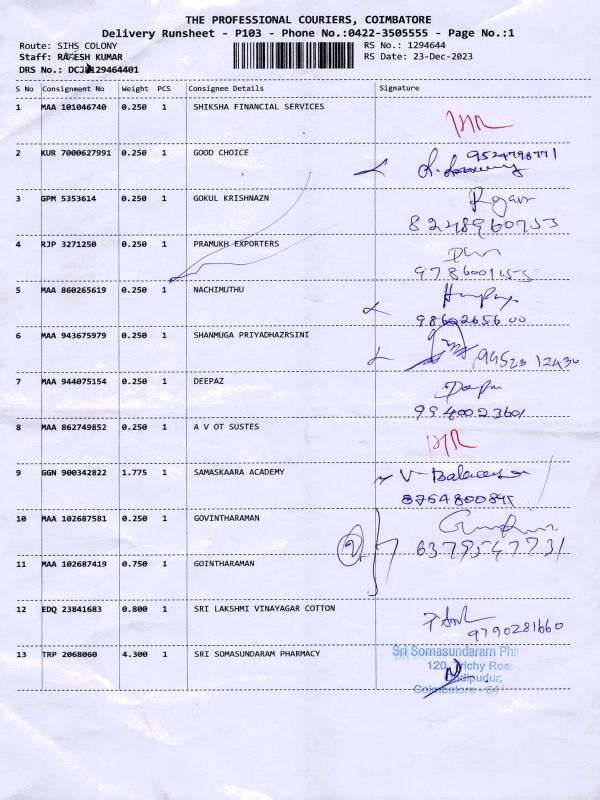 THE PROFESSIONAL COURIERS, COIMBATORE
Delivery Runsheet - P103 - Phone No.:0422-3505555 - Page No.:1
Route: SIHS COLONY RS No.: 1294644
Staff: RAJESH KUMAR RS Date: 23-Dec-2023
DRS No.: 129464401
S No Consignment No Weight PCS Consignee Details Signature
1 MAA 101046740 0.250 1 SHIKSHA FINANCIAL SERVICES
2 KUR 7000627991 0.250 1 GOOD CHOICE
3 GPM 5353614 0.250 1 GOKUL KRISHNAZN
8248960753
4 RJP 3271250 0.250 1 PRAMUKH EXPORTERS
5 MAA 860265619 0.250 1 NACHIMUTHU
9860265600
6 MAA 943675979 0.250 1 SHANMUGA PRIYADHAZRSINI
99523 12430
7 MAA 944075154 0.250 1 DEEPAZ
9940023601
8 MAA 862749852 0.250 1 A V OT SUSTES
9 GGN 900342822 1.775 1 SAMASKAARA ACADEMY
10 MAA 102687581 0.250 1 GOVINTHARAMAN
11 MAA 102687419 0.750 1 GOINTHARAMAN
12 EDQ 23841683 0.800 1 SRI LAKSHMI VINAYAGAR COTTON
9790281660
13 TRP 2068060 4.300 1 SRI SOMASUNDARAM PHARMACY
Sri Somasundaram Pha
120, Trichy Roa
Coimbatore - 641